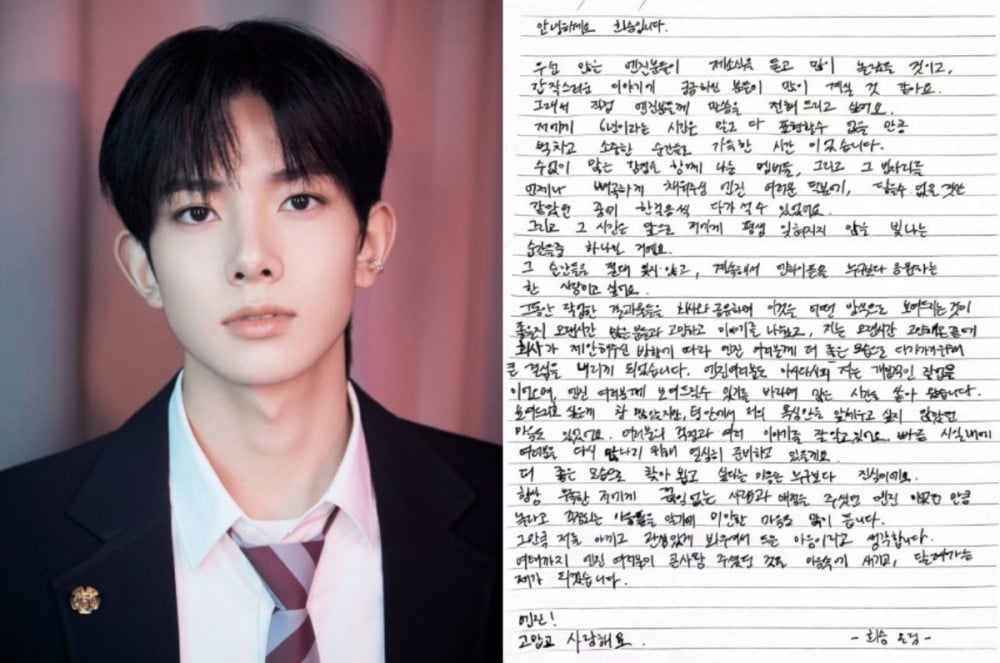 안녕하세요 희승입니다.
우선 많은 엔진분들이 제 소식을 듣고 많이 놀랐을 것이고,
갑작스러운 이야기에 궁금하신 분들이 많이 계실 것 같아요.
그래서 직접 엔진분들께 말씀을 전해 드리고 싶어요.
저에게 6년이라는 시간은 말로 다 표현할수 없을 만큼
벅차고 소중한 순간들로 가득한 시간 이었습니다.
수없이 많은 감정을 함께 나눈 멤버들, 그리고 그 빈자리를
언제나 빼곡하게 채워주신 엔진 여러분 덕분에, 닿을수 없을 것만
같았던 꿈에 한걸음씩 다가 설 수 있었어요.
그리고 그 시간은 앞으로 저에게 평생 잊혀지지 않을 빛나는
순간들중 하나일 거에요.
그 순간들을 절대 잊지 않고, 계속해서 엔하이픈을 누구보다 응원하는
한 사람이고 싶어요.
그동안 작업한 결과물들을 회사와 공유하며 이것을 어떤 방식으로 보여드리는 것이
좋을지 오랜시간 많은 분들과 고민하고 이야기를 나눴고, 저는 오랜시간 고민해온 끝에
회사가 제안해주신 방향에 따라 엔진 여러분께 더 좋은 모습으로 다가가기위해
큰 결심을 내리게 되었습니다. 엔진여러분도 아시다시피 저는 개인적인 작업물
이 있으며, 엔진 여러분께 보여드릴수 있기를 바라며 많은 시간을 쏟아 왔습니다.
보여드리고 싶은게 참 많았지만, 팀 안에서 저의 욕심만을 앞세우고 싶지 않았던
마음도 있었어요. 여러분의 걱정과 여러 이야기를 잘 알고 있어요. 빠른 시일내에
여러분을 다시 만나기 위해 열심히 준비하고 있을게요.
더 좋은 모습으로 찾아 뵙고 싶다는 마음은 누구보다 진심이에요.
항상 부족한 저에게 끊임 없는 사랑과 애정을 주셨던 엔진 이었던 만큼
놀라고 걱정되는 마음들을 알기에 미안한 마음도 많이 듭니다.
그만큼 저를 아끼고 관심있게 봐주셔서 드는 마음이라고 생각합니다.
여태까지 엔진 여러분이 큰사랑 주셨던 것을 마음속에 새기고, 달려가는
제가 되겠습니다.
엔진!
고맙고 사랑해요.
- 희승 올림 -